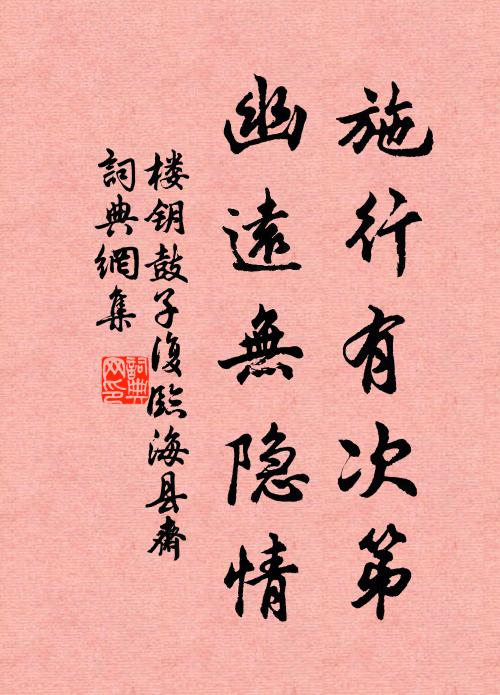 施行有次第
幽遠無隐情
楼钥鼓子復臨海县斋
詞典網集
詞典
网印